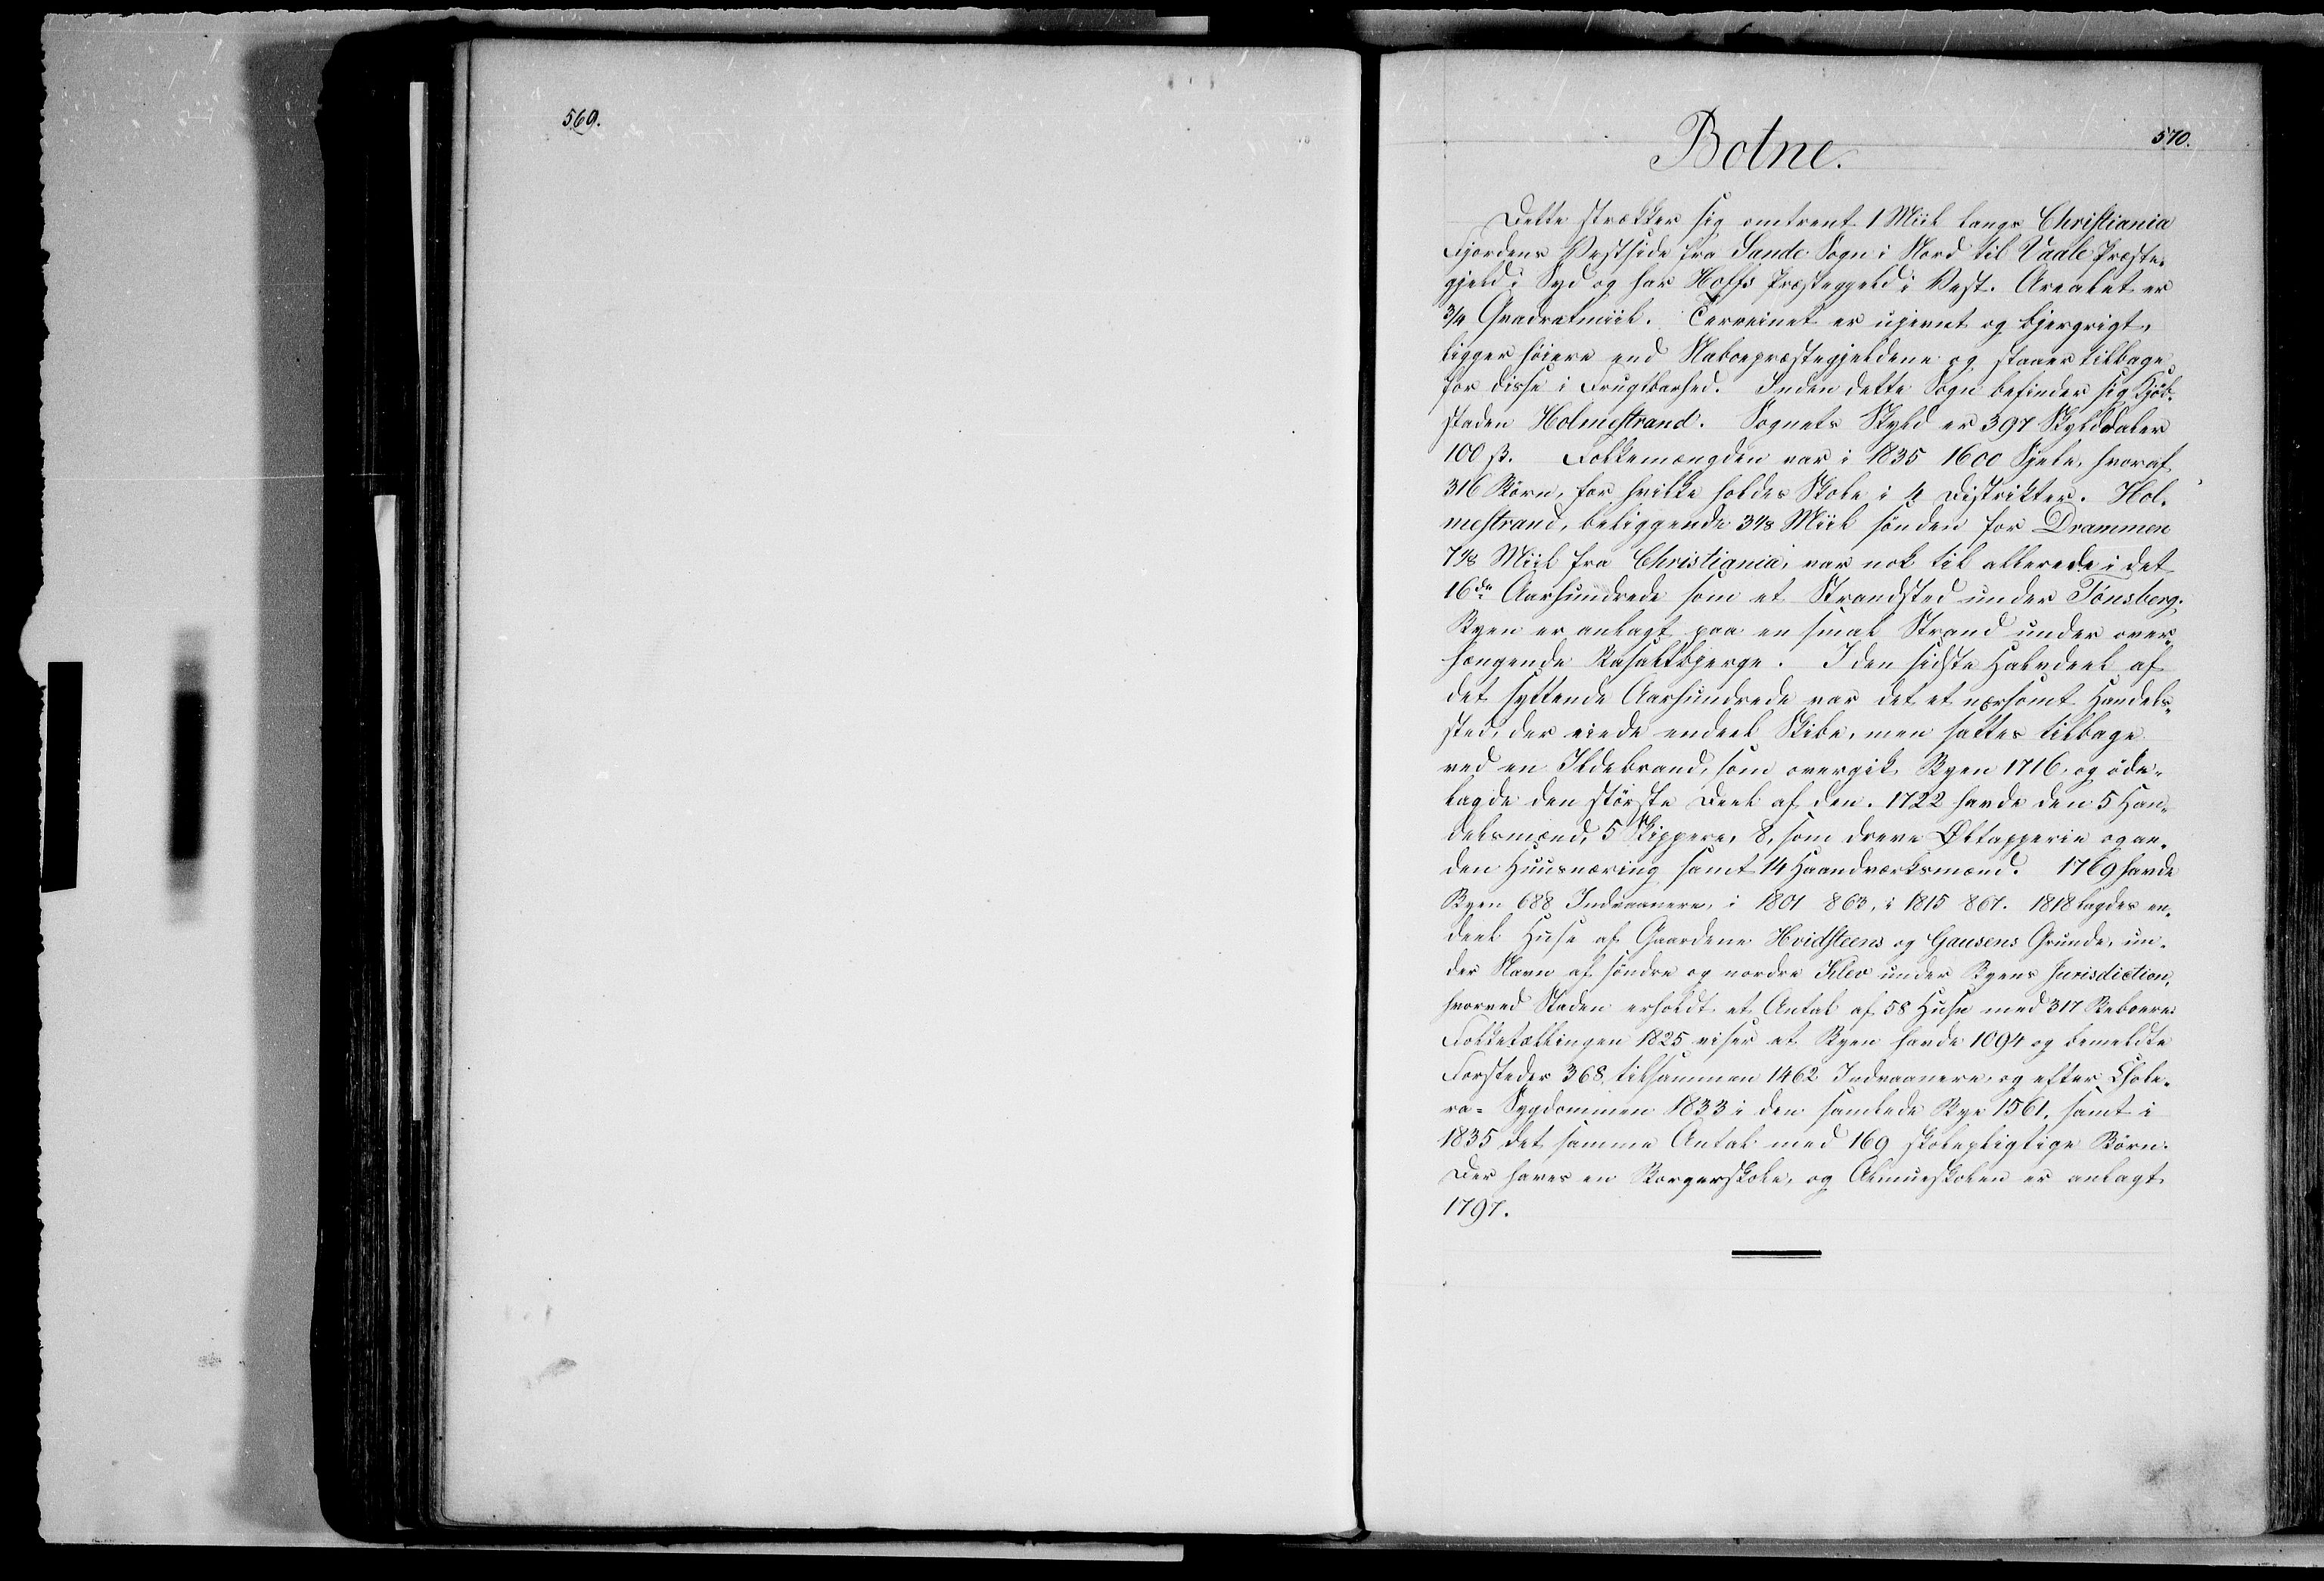 569.
570.
Botne.
Dette strækker sig omtrent 1 Miil langs Christiania
Fjordens Vestside fra Sande Sogn i Nord til Vaale Præste-
gjeld i Syd og har Hoffs Præstegjeld i Vest. Arealet er
3/4 Qvadratmiil. Terreinet er ujevnt og bjergrigt,
ligger høiere end Naboepræstegjeldene og staaer tilbage
for disse i Frugtbarhed. Inden dette Sogn befinder sig Kjøb-
staden Holmestrand. Sognets Skyld er 397 Skylddaler
100 ß. Folkemængden var i 1835 1600 Sjele, hvoraf
316 Børn, for hvilke holdes Skole i 4 Distrikter. Hol-
mestrand, beliggende 3 1/8 Miil sønden for Drammen
7 1/8 Miil fra Christiania, var nok til allerede i det
16de Aarhundrede som et Strandsted under Tönsberg.
Byen er anlagt paa en smal Strand under over-
hængende Basaltbjerge. I den sidste Halvdeel af
det syttende Aarhundrede var det et nærsomt Handels-
sted, der eiede endeel Skibe, men sattes tilbage
ved en Ildebrand, som overgik Byen 1716, og öde-
lagde den største Deel af den. 1722 havde den 5 Han-
delsmænd, 5 Skippere, 8, som dreve Øltapperie og an-
den Huusnæring samt 14 Haandværksmænd. 1769 havde
Byen 688 Indvaanere, i 1801 863, i 1815 867. 1818 lagdes en-
deel Huse af Gaardene Hvidsteens og Gausens Grunde, un-
der Navn af söndre og nordre Klev under Byens Jurisdiction,
hvorved Staden erholdt et Antal af 58 Huse med 317 Beboere.
Folketællingen 1825 viser at Byen havde 1094 og bemeldte
Forsteder 368, tilsammen 1462 Indvaanere, og efter Chole-
ra-Sygdommen 1833 i den samlede Bye 1561, samt i
1835 det samme Antal med 169 skolepligtige Børn.
Der haves en Borgerskole, og Almueskolen er anlagt
1797.